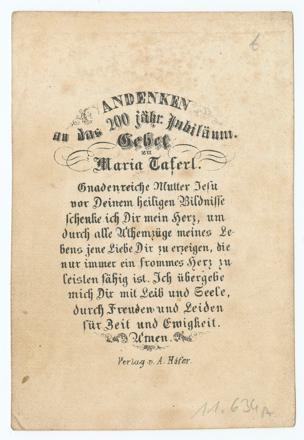 ANDENKEN
an das 200 jähr. Jubiläum.
Gebet
zu
Maria Taferl.
Gnadenreiche Mutter Jesu
vor Deinem heiligen Bildnisse
schenke ich Dir mein Herz, um
durch alle Athemzüge meines Le-
bens jene Liebe Dir zu erzeigen, die
nur immer ein frommes Herz zu
leisten fähig ist. Ich übergebe
mich Dir mit Leib und Seele,
durch Freuden und Leiden
für Zeit und Ewigkeit.
Amen.
Verlag v. A. Höfer.
11.634